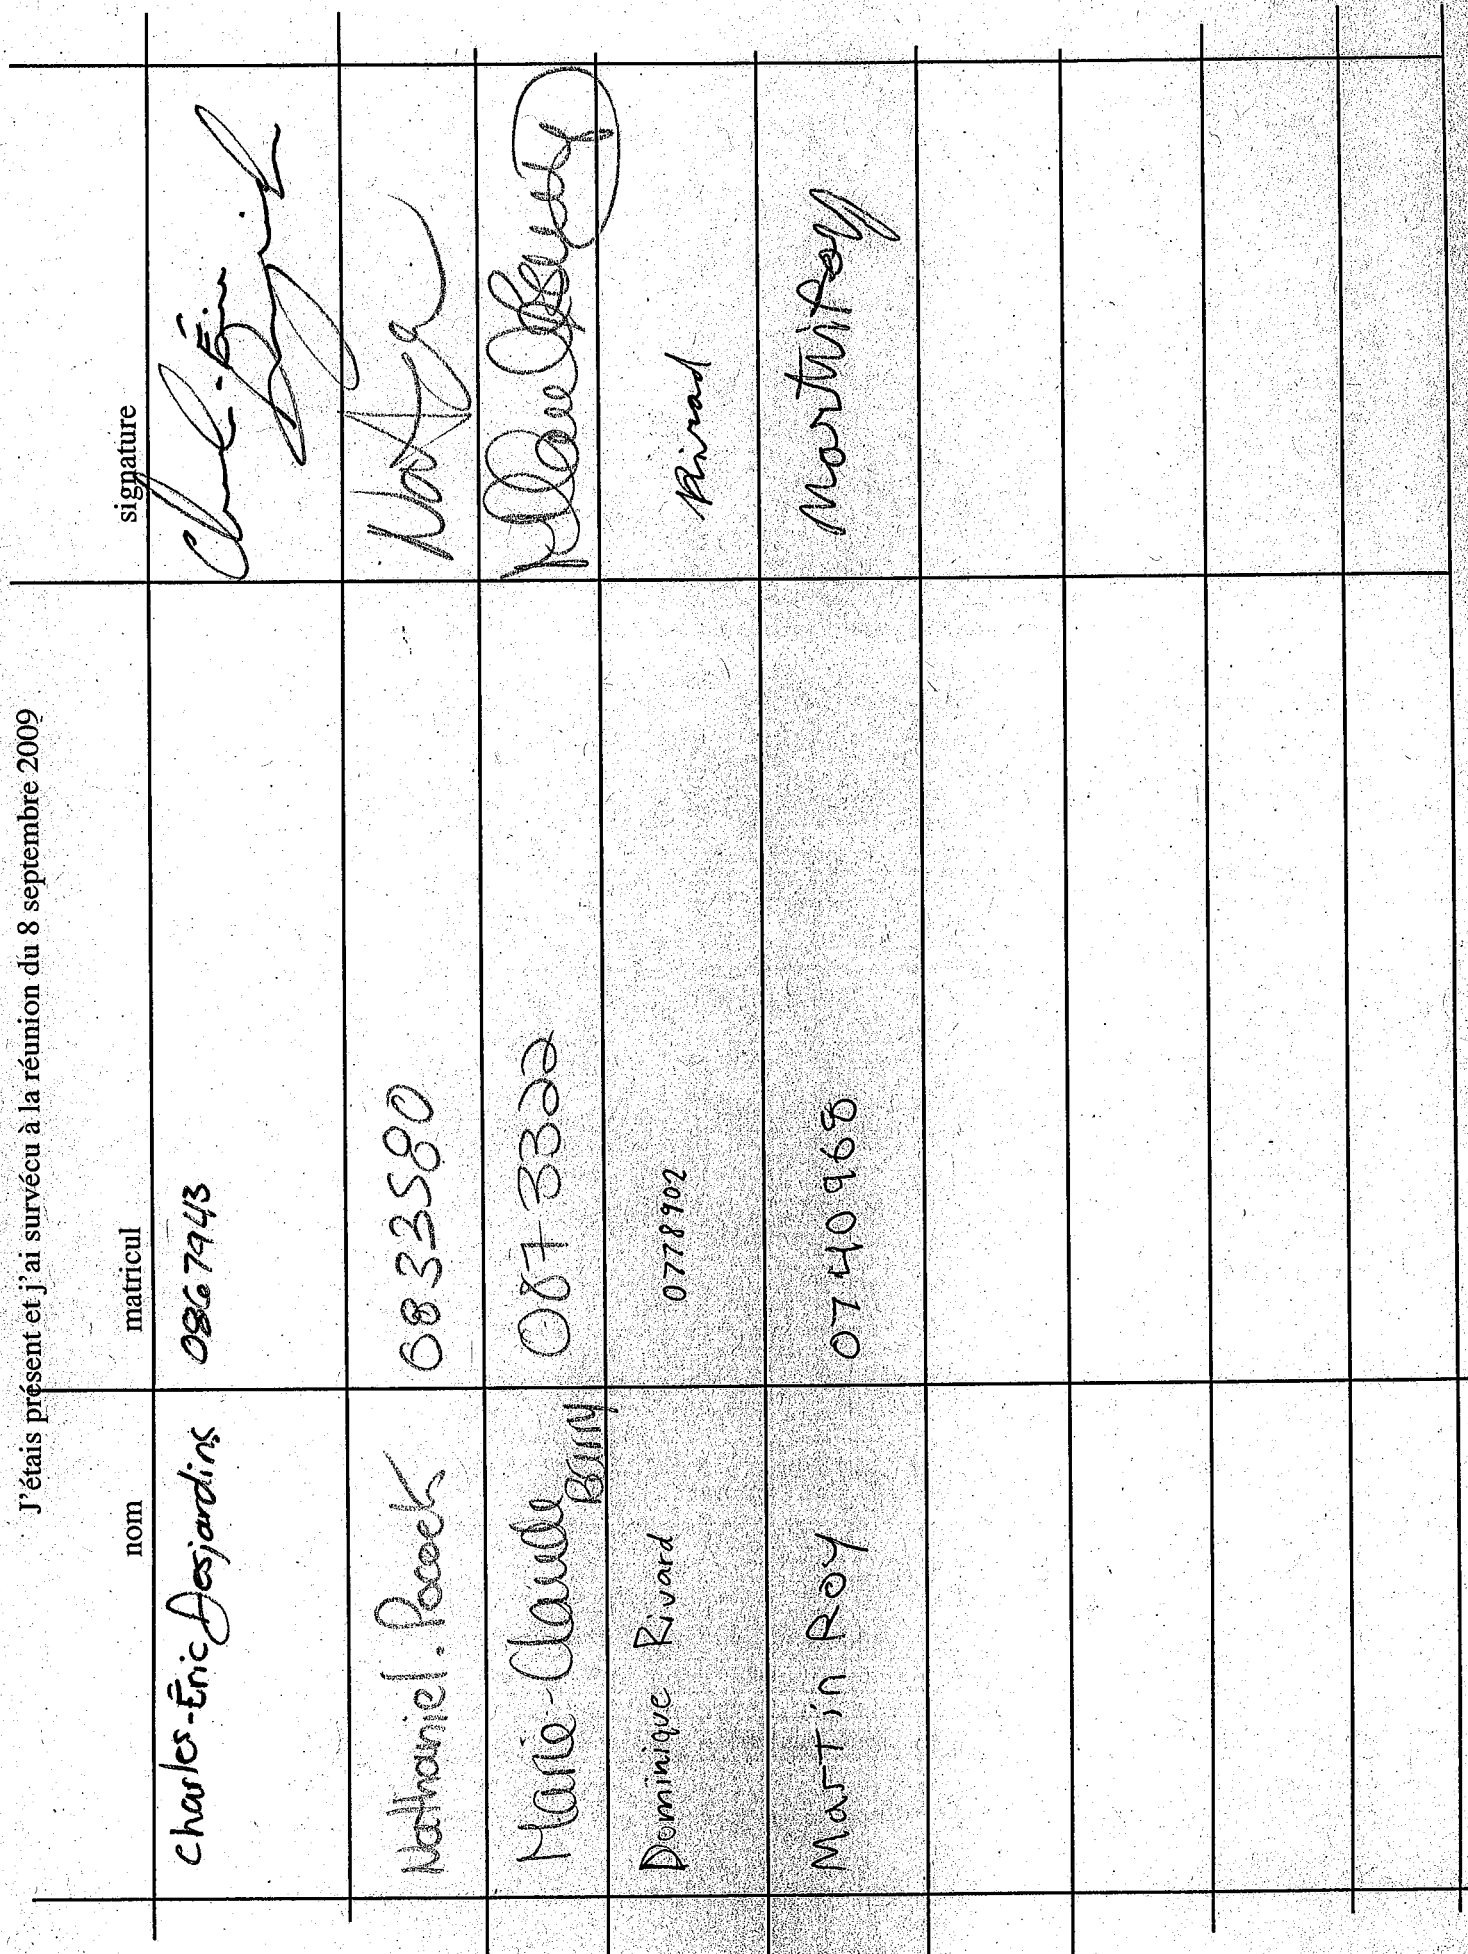 J'étais présent et j'ai survécu à la réunion du 8 septembre 2009
nom matricul signature
Charles-Éric Desjardins 0867943 Charles-Éric Desjardins
Nathaniel. Pocock 0833580
Marie-Claude Barry 0873322
Dominique Rivard 0778902 Rivard
MarTin Roy 0740968 Martin Roy